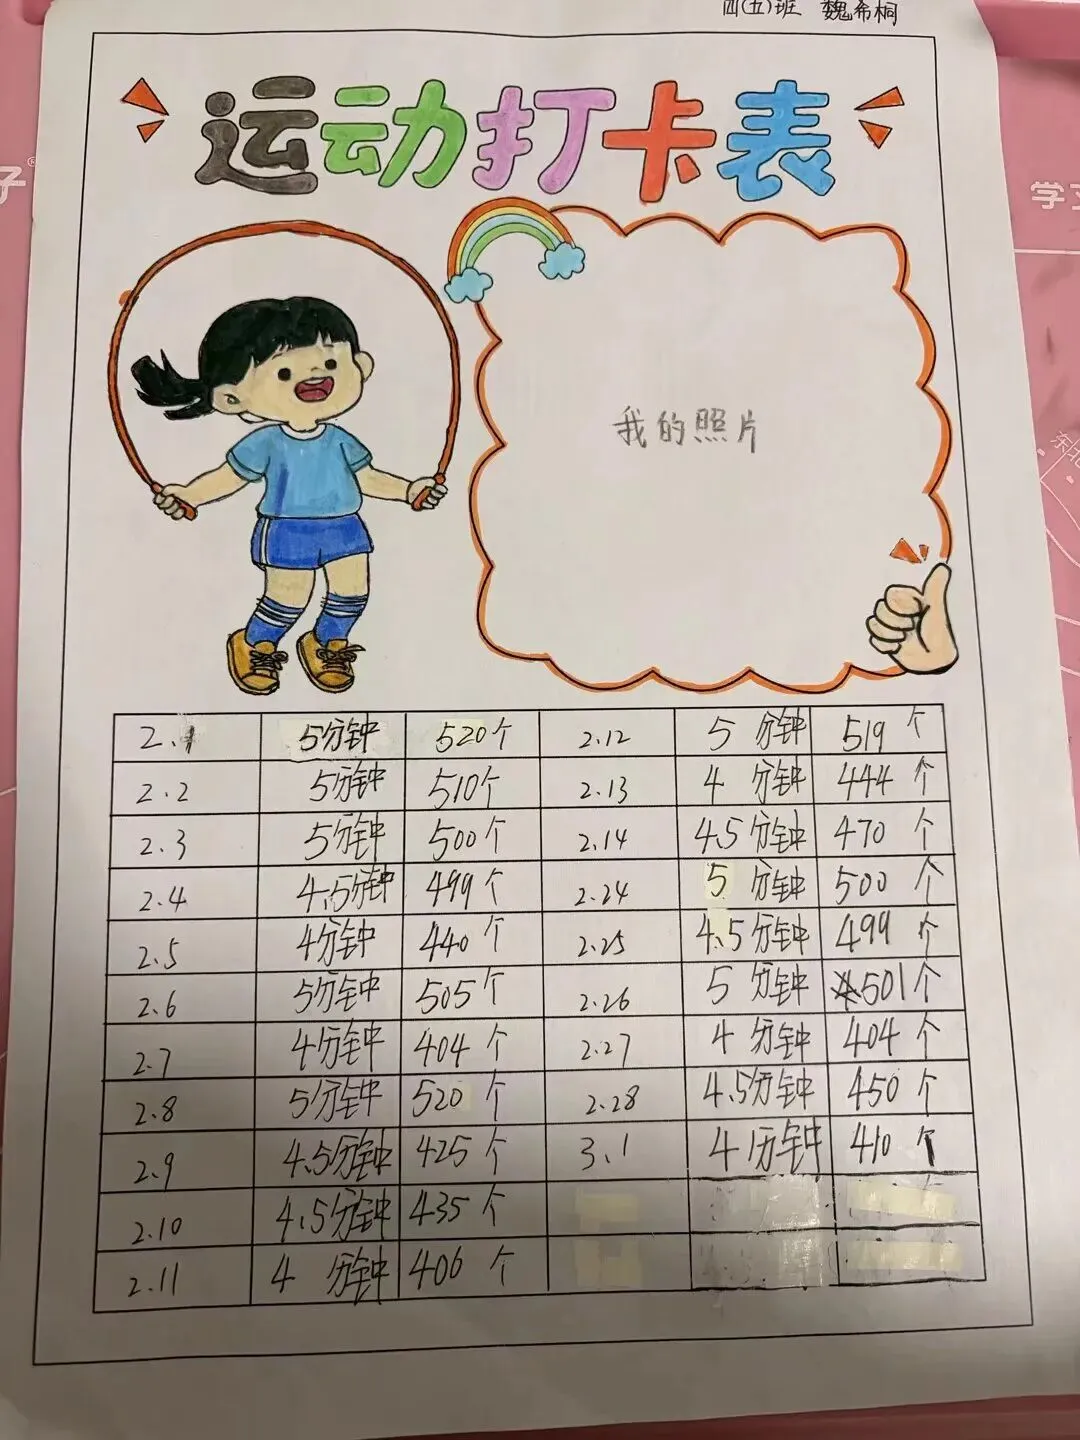 四(五)班 魏希桐
运动打卡表
我的照片
2.1 5分钟 520个 2.12 5 分钟 519 个
2.2 5分钟 510个 2.13 4 分钟 444 个
2.3 5分钟 500个 2.14 4.5分钟 470 个
2.4 4.5分钟 499个 2.24 5 分钟 500 个
2.5 4分钟 440个 2.25 4.5分钟 499 个
2.6 5分钟 505个 2.26 5 分钟 501个
2.7 4分钟 404个 2.27 4 分钟 404 个
2.8 5分钟 520个 2.28 4.5分钟 450 个
2.9 4.5分钟 425个 3.1 4分钟 410 个
2.10 4.5分钟 435个
2.11 4 分钟 406 个
子®
学习
东北